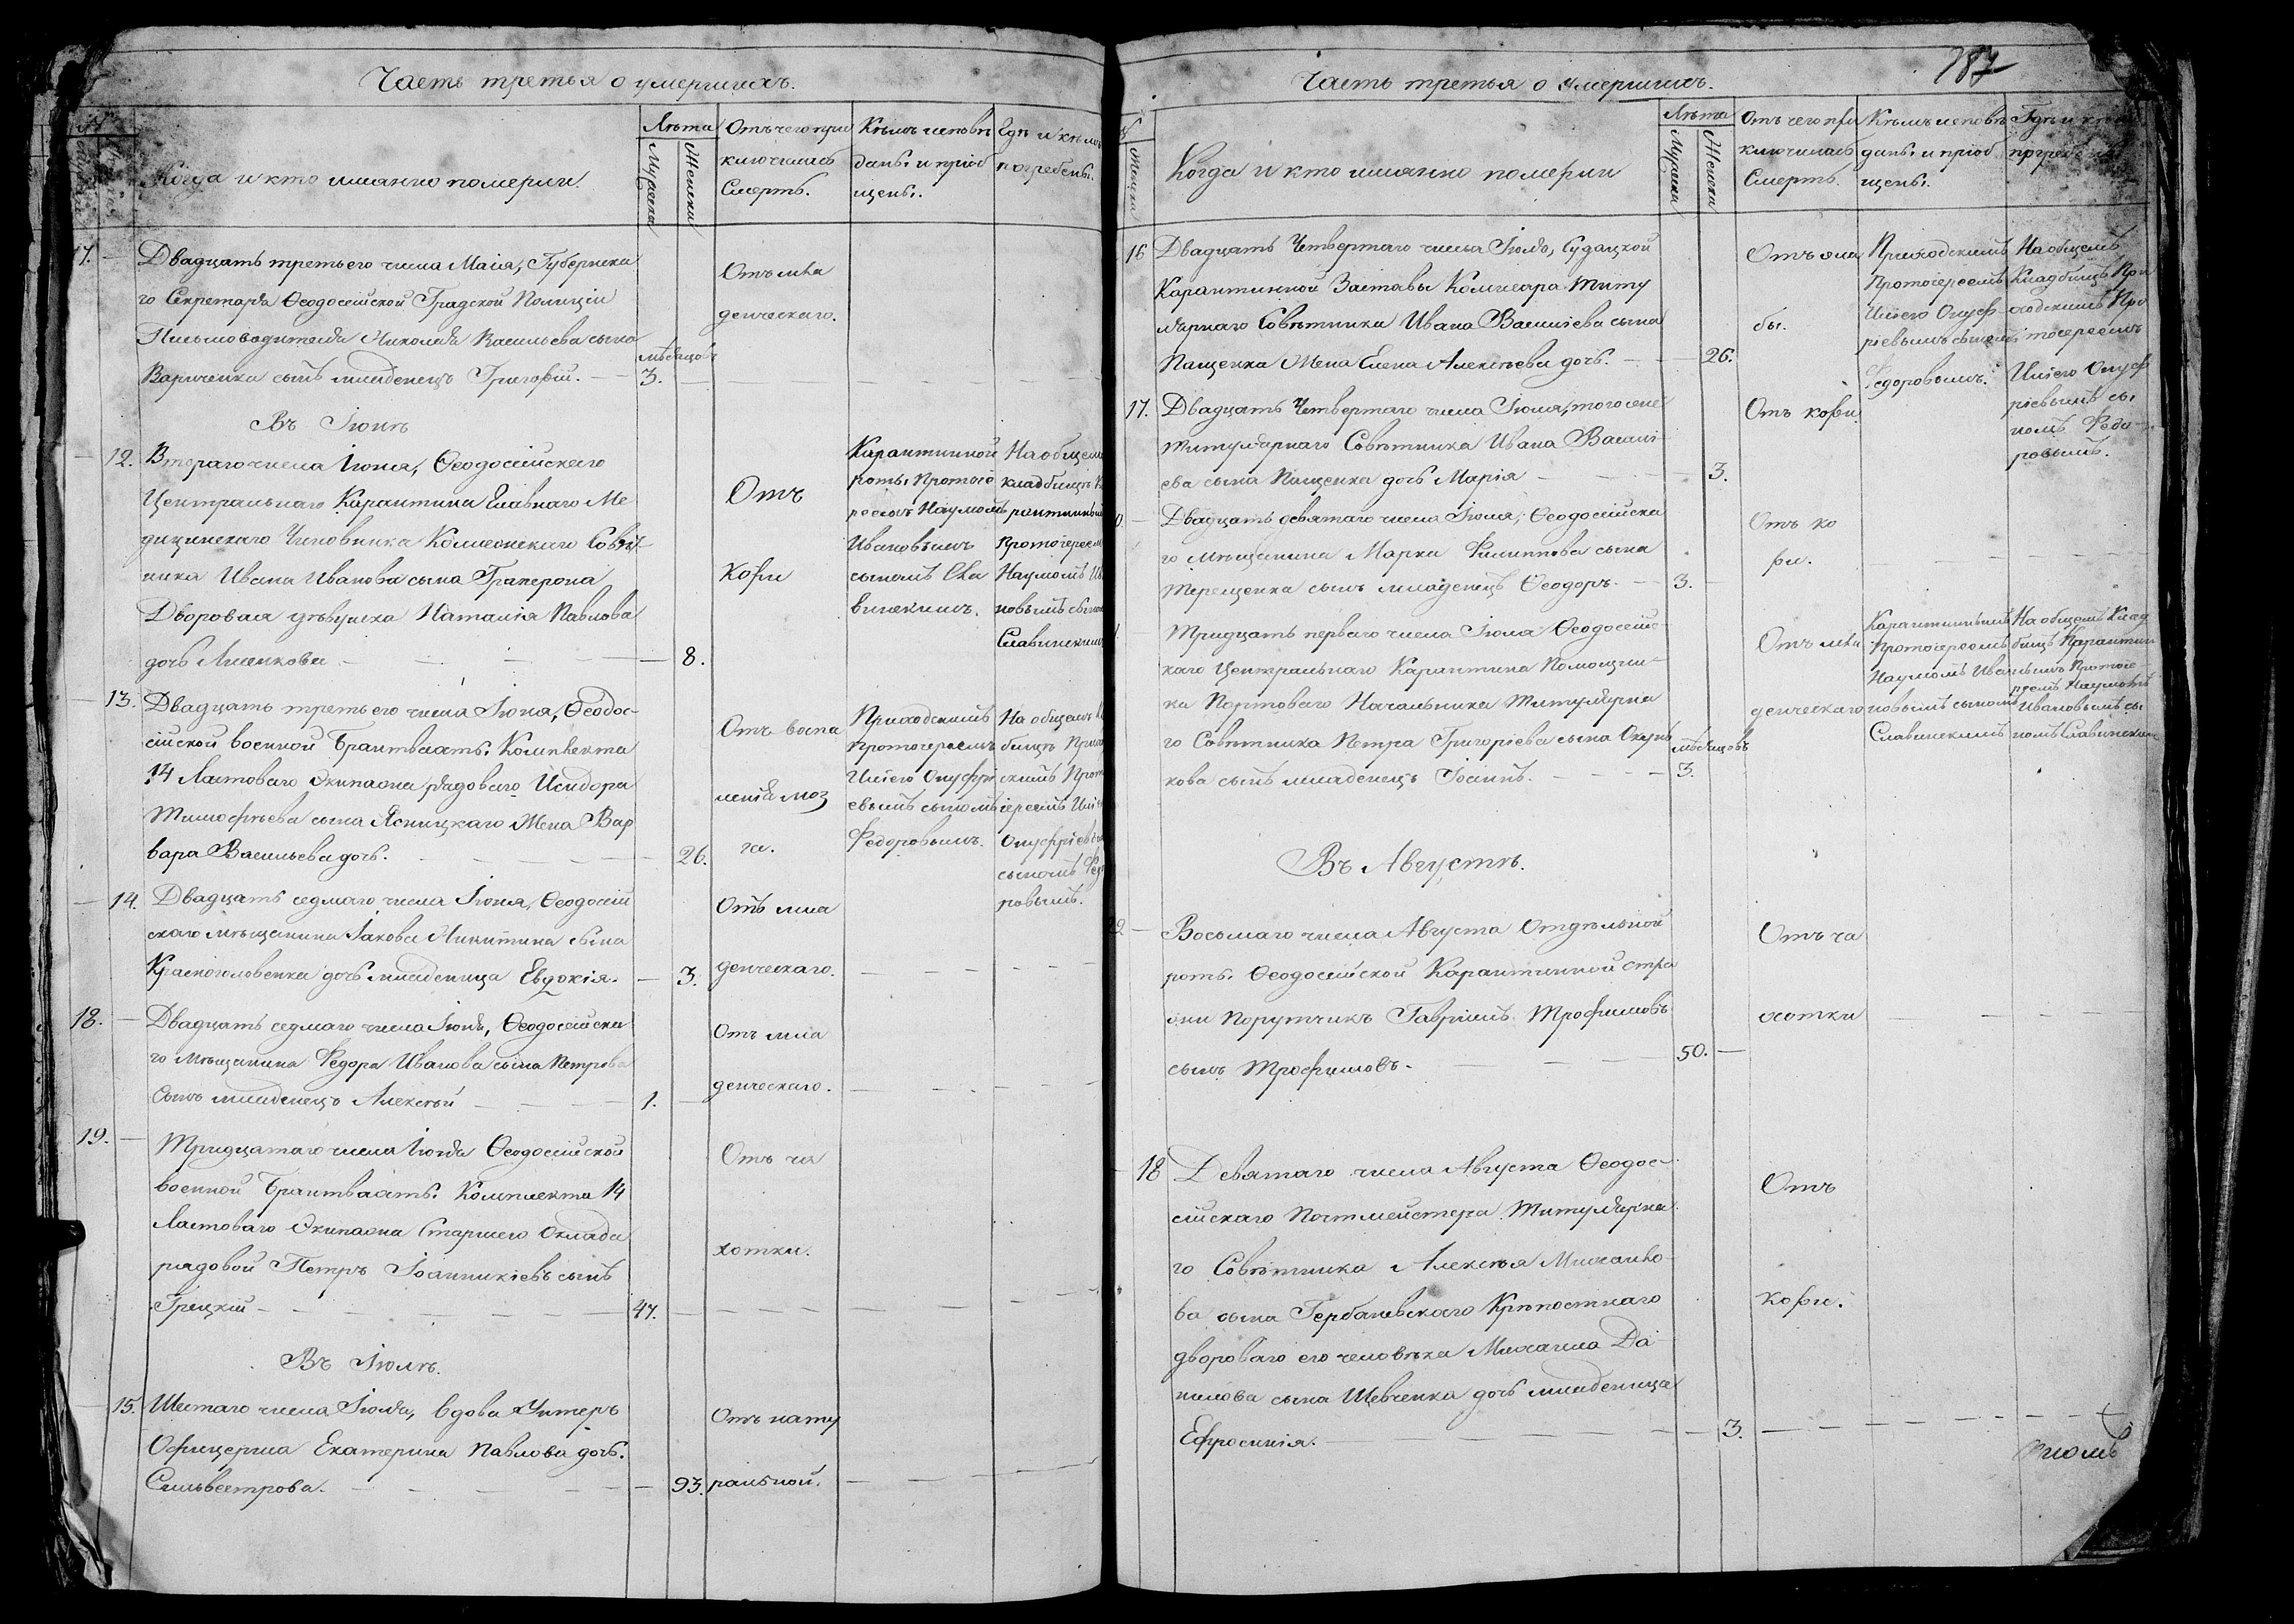 Часть третья о умершихъ.
Когда и кто имянно померли.
Лѣта
Мужеска
Женска
Отъ чего при
ключилась
Смерть.
Кѣмъ исповѣ
даны и пріоб
щены.
Гдѣ и кѣмъ
погребены.
17.
Двадцать третьего числа Маія, Губернска
го Секретаря Ѳеодосійской Градской Полиціи
Письмоводителя Николая Васильева сына
Вариченка сынъ младенецъ Григорій.
мѣсяцовъ
3.
Отъ мла
денческаго.
Въ Іюнѣ
12.
Втораго числа Іюня, Ѳеодосійскаго
Центральнаго Карантина Главнаго Ме
дицинскаго Чиновника Коллежскаго Совѣт
ника Ивана Иванова сына Граперона
Дворовая дѣвушка Наталія Павлова
дочь Лисенкова
8.
Отъ
Кори
Карантинной
роты Протоіе
реемъ Наумомъ
Ивановымъ
сыномъ Сла
винскимъ.
На общемъ
кладбищѣ К
рантинный
Протоіереем
Наумомъ Ив
новымъ сыном
Славинскимъ
13.
Двадцать третьего числа Іюня, Ѳеодос-
сійской военной Брантвахты Комплекта
14 Ластоваго Экипажа рядоваго Исидора
Тимофѣева сына Ясницкаго Жена Вар
вара Васильева дочь.
26.
Отъ воспа
ленія моз
га.
Приходскимъ
Протоіереемъ
Иліею Онуфрі
евымъ сыномъ
Федоровымъ.
На общемъ
бищѣ Прихо
скимъ Прот
іереемъ Иліе
Онуфріевы
сыномъ Федо
ровымъ.
14.
Двадцать седмаго числа Іюня, Ѳеодосій
скаго мѣщанина Іакова Никитина сына
Красноголовенка дочь младеница Евдокія.
3.
Отъ мла
денческаго.
18.
Двадцать седмаго числа Іюня, Ѳеодосійска
го Мѣщанина Федора Иванова сына Петрова
Сынъ младенецъ Алексѣй
1.
Отъ мла
денческаго.
19.
Тридцатаго числа Іюня Ѳеодосійской
военной Брантвахты Комплекта 14
Ластоваго Экипажа Старшего Оклада
рядовой Петръ Іоанникіевъ сынъ
Грецкій
47.
Отъ ча
хотки.
Въ Іюлѣ.
15.
Шестаго числа Іюля, вдова Унтеръ
Офицерша Екатерина Павлова дочь.
Сильвестрова.
93.
Отъ нату
ральной.
Часть третья о умершихъ.
187
Женска
Когда и кто имянно померли
Лѣта
Мужеска
Женска
Отъ чего при
ключилась
Смерть.
Кѣмъ исповѣ
даны и пріоб
щены.
Гдѣ и кѣмъ
погребены
16
Двадцать Четвертаго числа Іюля, Судацкой
Карантинной Заставы Комисара Титу
лярнаго Совѣтника Ивана Васильева сына
Пащенка Жена Елена Алексѣева дочь.
26.
бы.
Приходскимъ
Протоіереемъ
Иліею Онуф
ріевымъ сыномъ
Федоровымъ.
На общемъ
Кладбищѣ При
ходскимъ Про
тоіереемъ
Иліею Онуф
ріевымъ сы
номъ Федо
ровымъ.
17.
Двадцать Четвертаго числа Іюля, того же
Титулярнаго Совѣтника Ивана Василь-
ева сына Пащенка дочь Марія
3.
Отъ кори
Двадцать девятаго числа Іюля, Ѳеодосійска
го мѣщанина Марка Филиппова сына
Терещенка сынъ младенецъ Ѳеодоръ.
3.
Отъ ко
ри.
Тридцать перваго числа Іюля Ѳеодосійс-
каго Центральнаго Карантина Помощни-
ка Портоваго Начальника Титулярна
го Совѣтника Петра Григоріева сына
кова сынъ младенецъ Іоаннъ.
мѣсяцовъ
3.
Отъ мла
денческаго
Карантиннымъ
Протоіереемъ
Наумомъ Ива
новымъ сыномъ
Славинскимъ
На общемъ Клад
бищѣ Карантин
нымъ Протоіе-
реемъ Наумомъ
Ивановымъ сы
номъ Славинскимъ
Въ Августѣ.
Восьмаго числа Августа Отдѣльной
роты Ѳеодосійской Карантинной стра
жи Порутчикъ Гавріилъ Трофимовъ
сынъ Трофимовъ.
50.
Отъ ча
хотки
18
Девятаго числа Августа Ѳеодос-
сійскаго Почтмейстера Титулярна
го Совѣтника Алексѣя Михайло-
ва сына Гербаневскаго Крѣпостнаго
двороваго его человѣка Михаила Да
нилова сына Шевченка дочь младеница
Ефросинія.
3.
Отъ
кори.